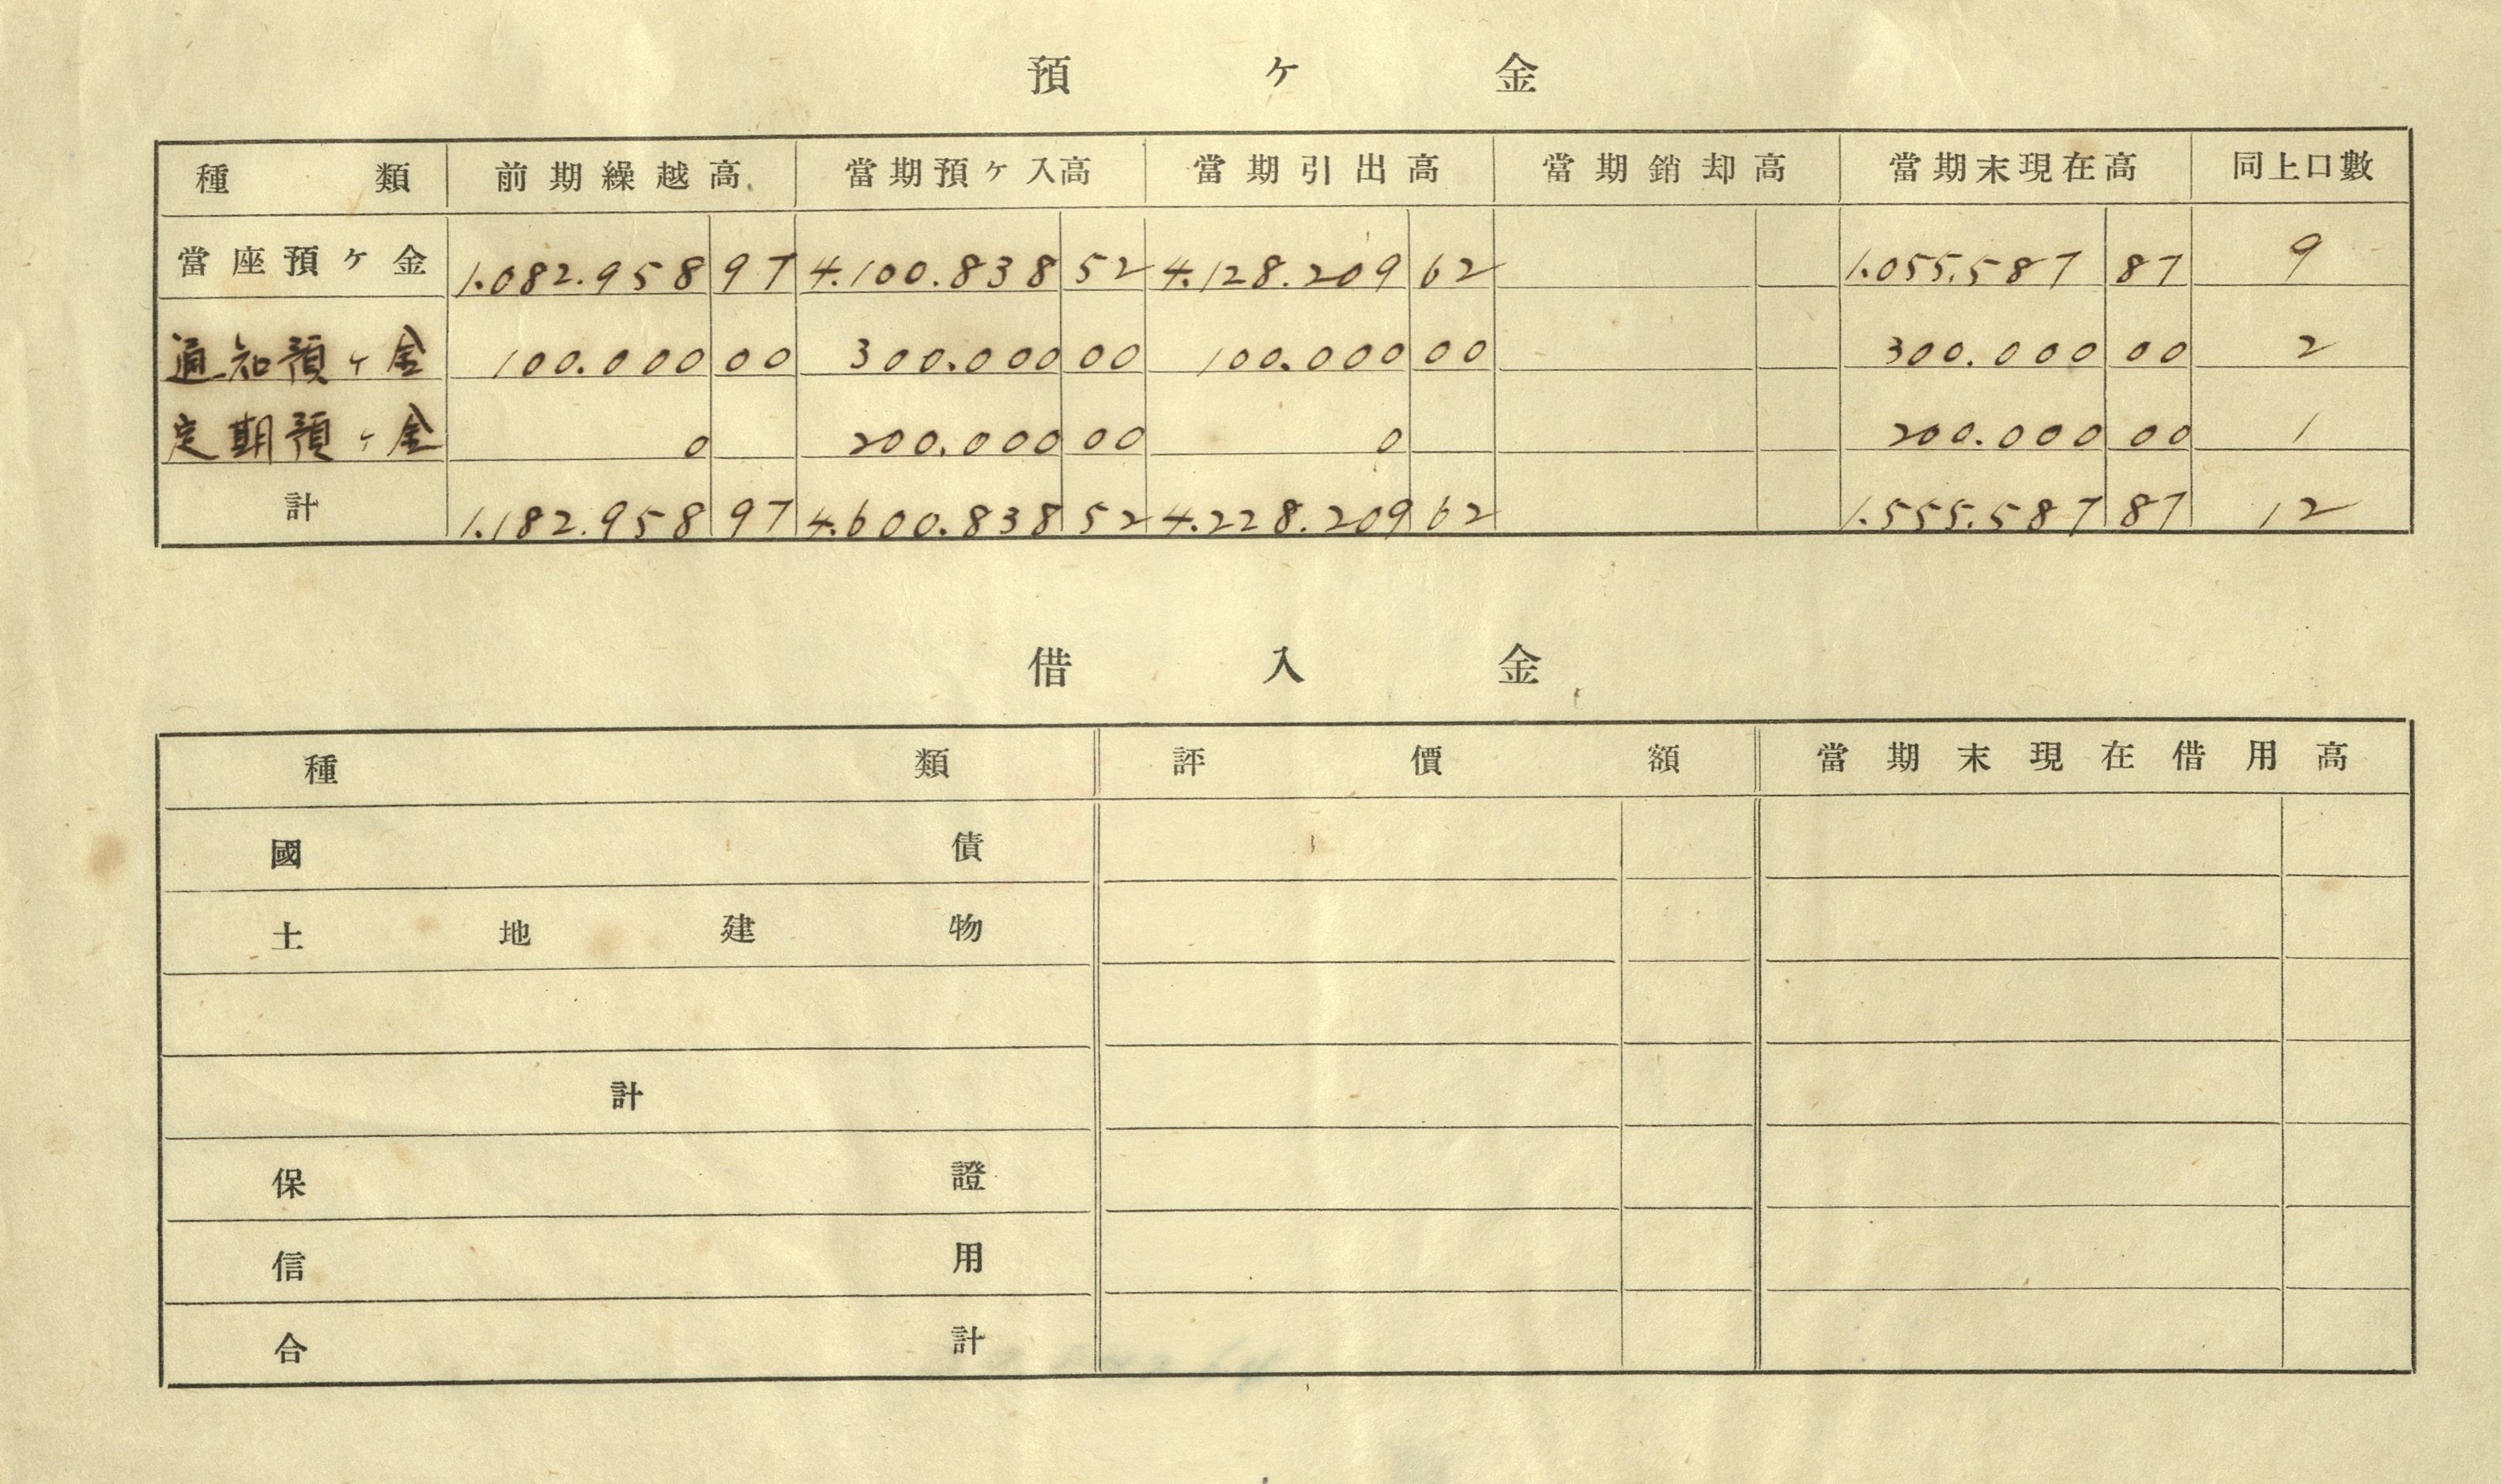 預ヶ金
種類 前期繰越高 當期預ヶ入高 當期引出高 當期銷却高 當期末現在高 同上口數
當座預ヶ金 1.082.958 97 4.100.838 52 4.128.209 62 1.055.587 87 9
通知預ヶ金 100.000 00 300.000 00 100.000 00 300.000 00 2
定期預ヶ金 0 200.000 00 0 200.000 00 1
計 1.182.958 97 4.600.838 52 4.228.209 62 1.555.587 87 12
借入金
種類 評價額 當期末現在借用高
國債
土地建物
計
保證
信用
合計